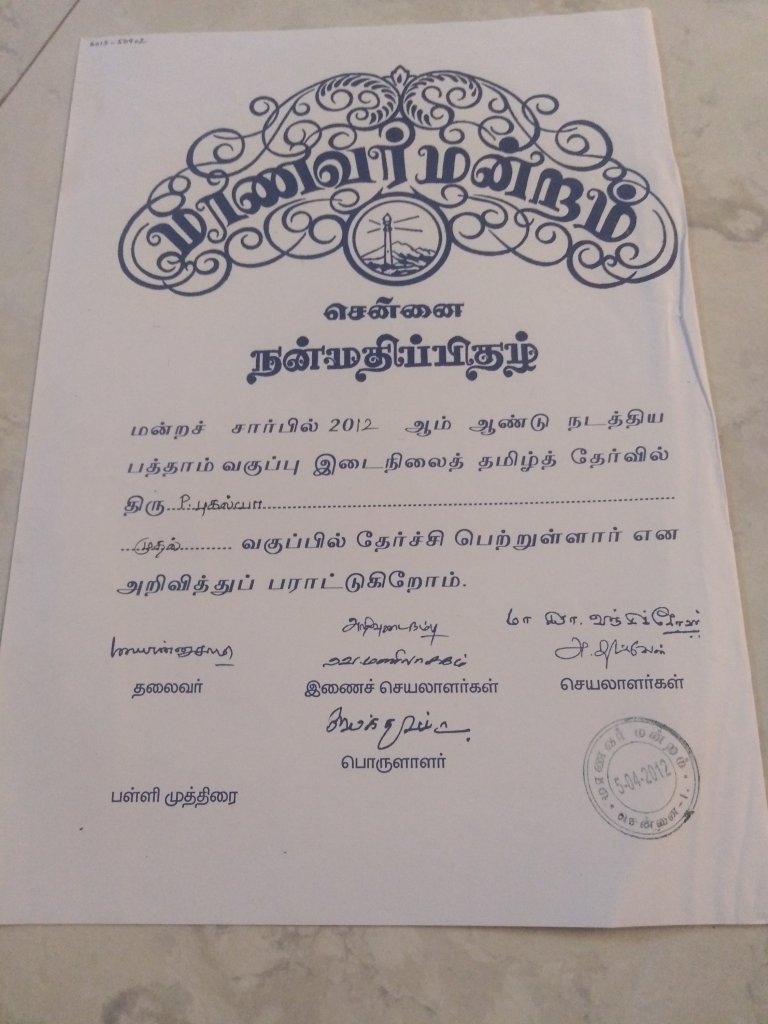 மாணவர் மன்றம்
சென்னை
நன்மதிப்பிதழ்
மன்றச் சார்பில் 2012 ஆம் ஆண்டு நடத்திய
பத்தாம் வகுப்பு இடைநிலைத் தமிழ்த் தேர்வில்
திரு P. புகல்யா
முதல் வகுப்பில் தேர்ச்சி பெற்றுள்ளார் என
அறிவித்துப் பராட்டுகிறோம்.
அறிவுடைநம்பி
தலைவர் இணைச் செயலாளர்கள் செயலாளர்கள்
பொருளாளர்
பள்ளி முத்திரை
மாணவர் மன்றம்
5-04-2012
சென்னை-1.